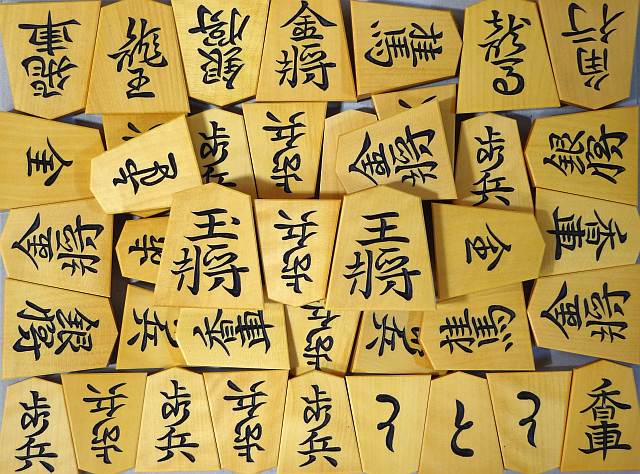 飛車
龍王
銀將
金將
桂馬
角行
金
歩兵
歩兵
金將
歩兵
銀將
金將
歩
玉將
歩兵
王將
金
香車
銀將
兵
香車
歩兵
兵
桂馬
金將
歩兵
歩兵
歩兵
歩兵
歩兵
と
と
と
香車